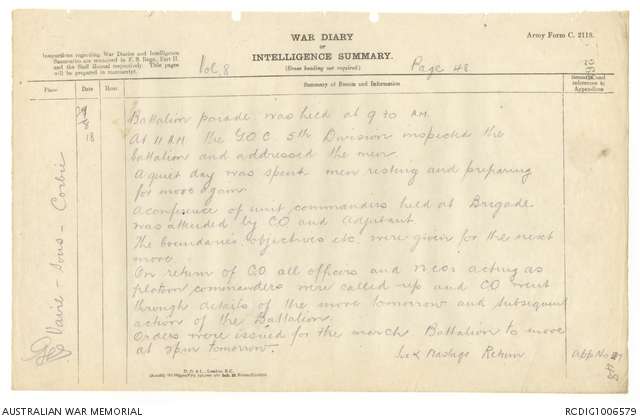 Army Form C. 2118.
WAR DIARY
or
INTELLIGENCE SUMMARY.
(Erase heading not required.)
Instructions regarding War Diaries and Intelligence
Summaries are contained in F. S. Regs., Part II.
and the Staff Manual respectively. Title pages
will be prepared in manuscript.
Vol. 8
Page 48
Place
Date
Hour
Summary of Events and Information
Remarks and
references to
Appendices
Vaire-Sous-Corbie
18
Battalion parade was held at 9 to AM.
At 11 AM the G.O.C. 5th Division inspected the
battalion and addressed the men.
A quiet day was spent men resting and preparing
for move again.
A conference of unit commanders held at Brigade
was attended by CO and Adjutant
The boundaries, objectives etc were given for the next
move.
On return of CO all officers and NCOs acting as
platoon commanders were called up and CO went
through details of the move tomorrow and subsequent
action of the Battalion.
Orders were issued for the march Battalion to move
at 2pm tomorrow.
Sick Return
App No
48
D. D. & L., London, E.C.
AUSTRALIAN WAR MEMORIAL
RCDIG1006579